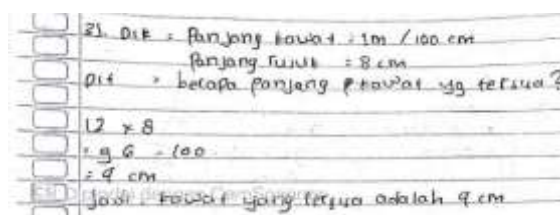 31. Dik : Panjang kawat : 1m / 100 cm
Panjang rusuk : 8 cm
Dit : berapa panjang kawat yg tersisa ?
12 x 8
= 96 - 100
= 4 cm
Jadi, kawat yang tersisa adalah 4 cm